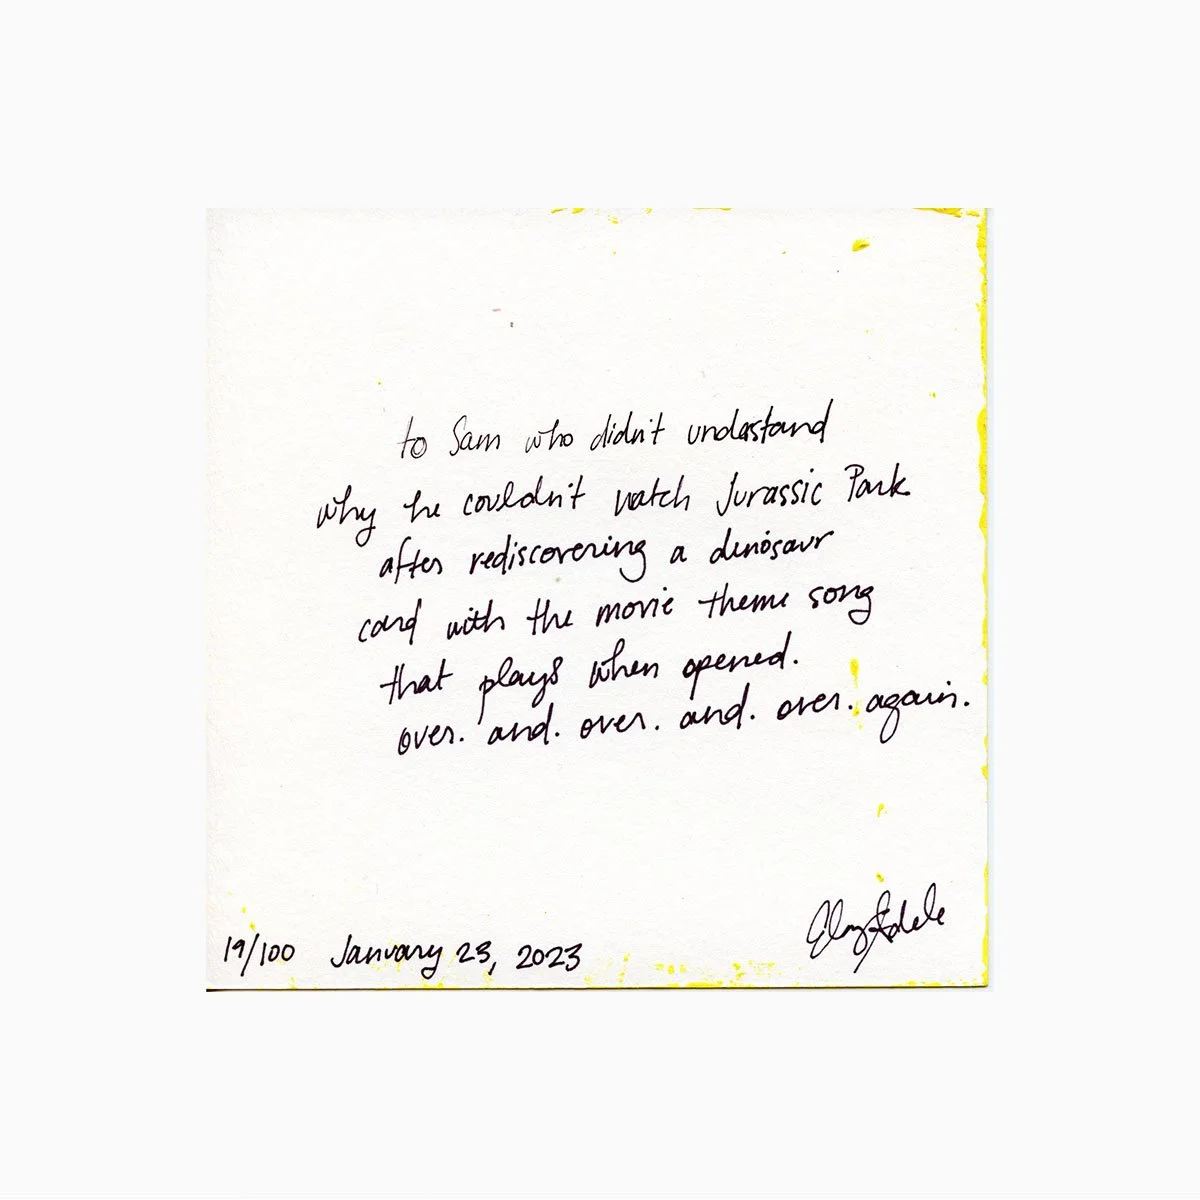 to Sam who didn't understand
why he couldn't watch Jurassic Park
after rediscovering a dinosaur
card with the movie theme song
that plays when opened.
over. and. over. and. over. again.
19/100 January 23, 2023